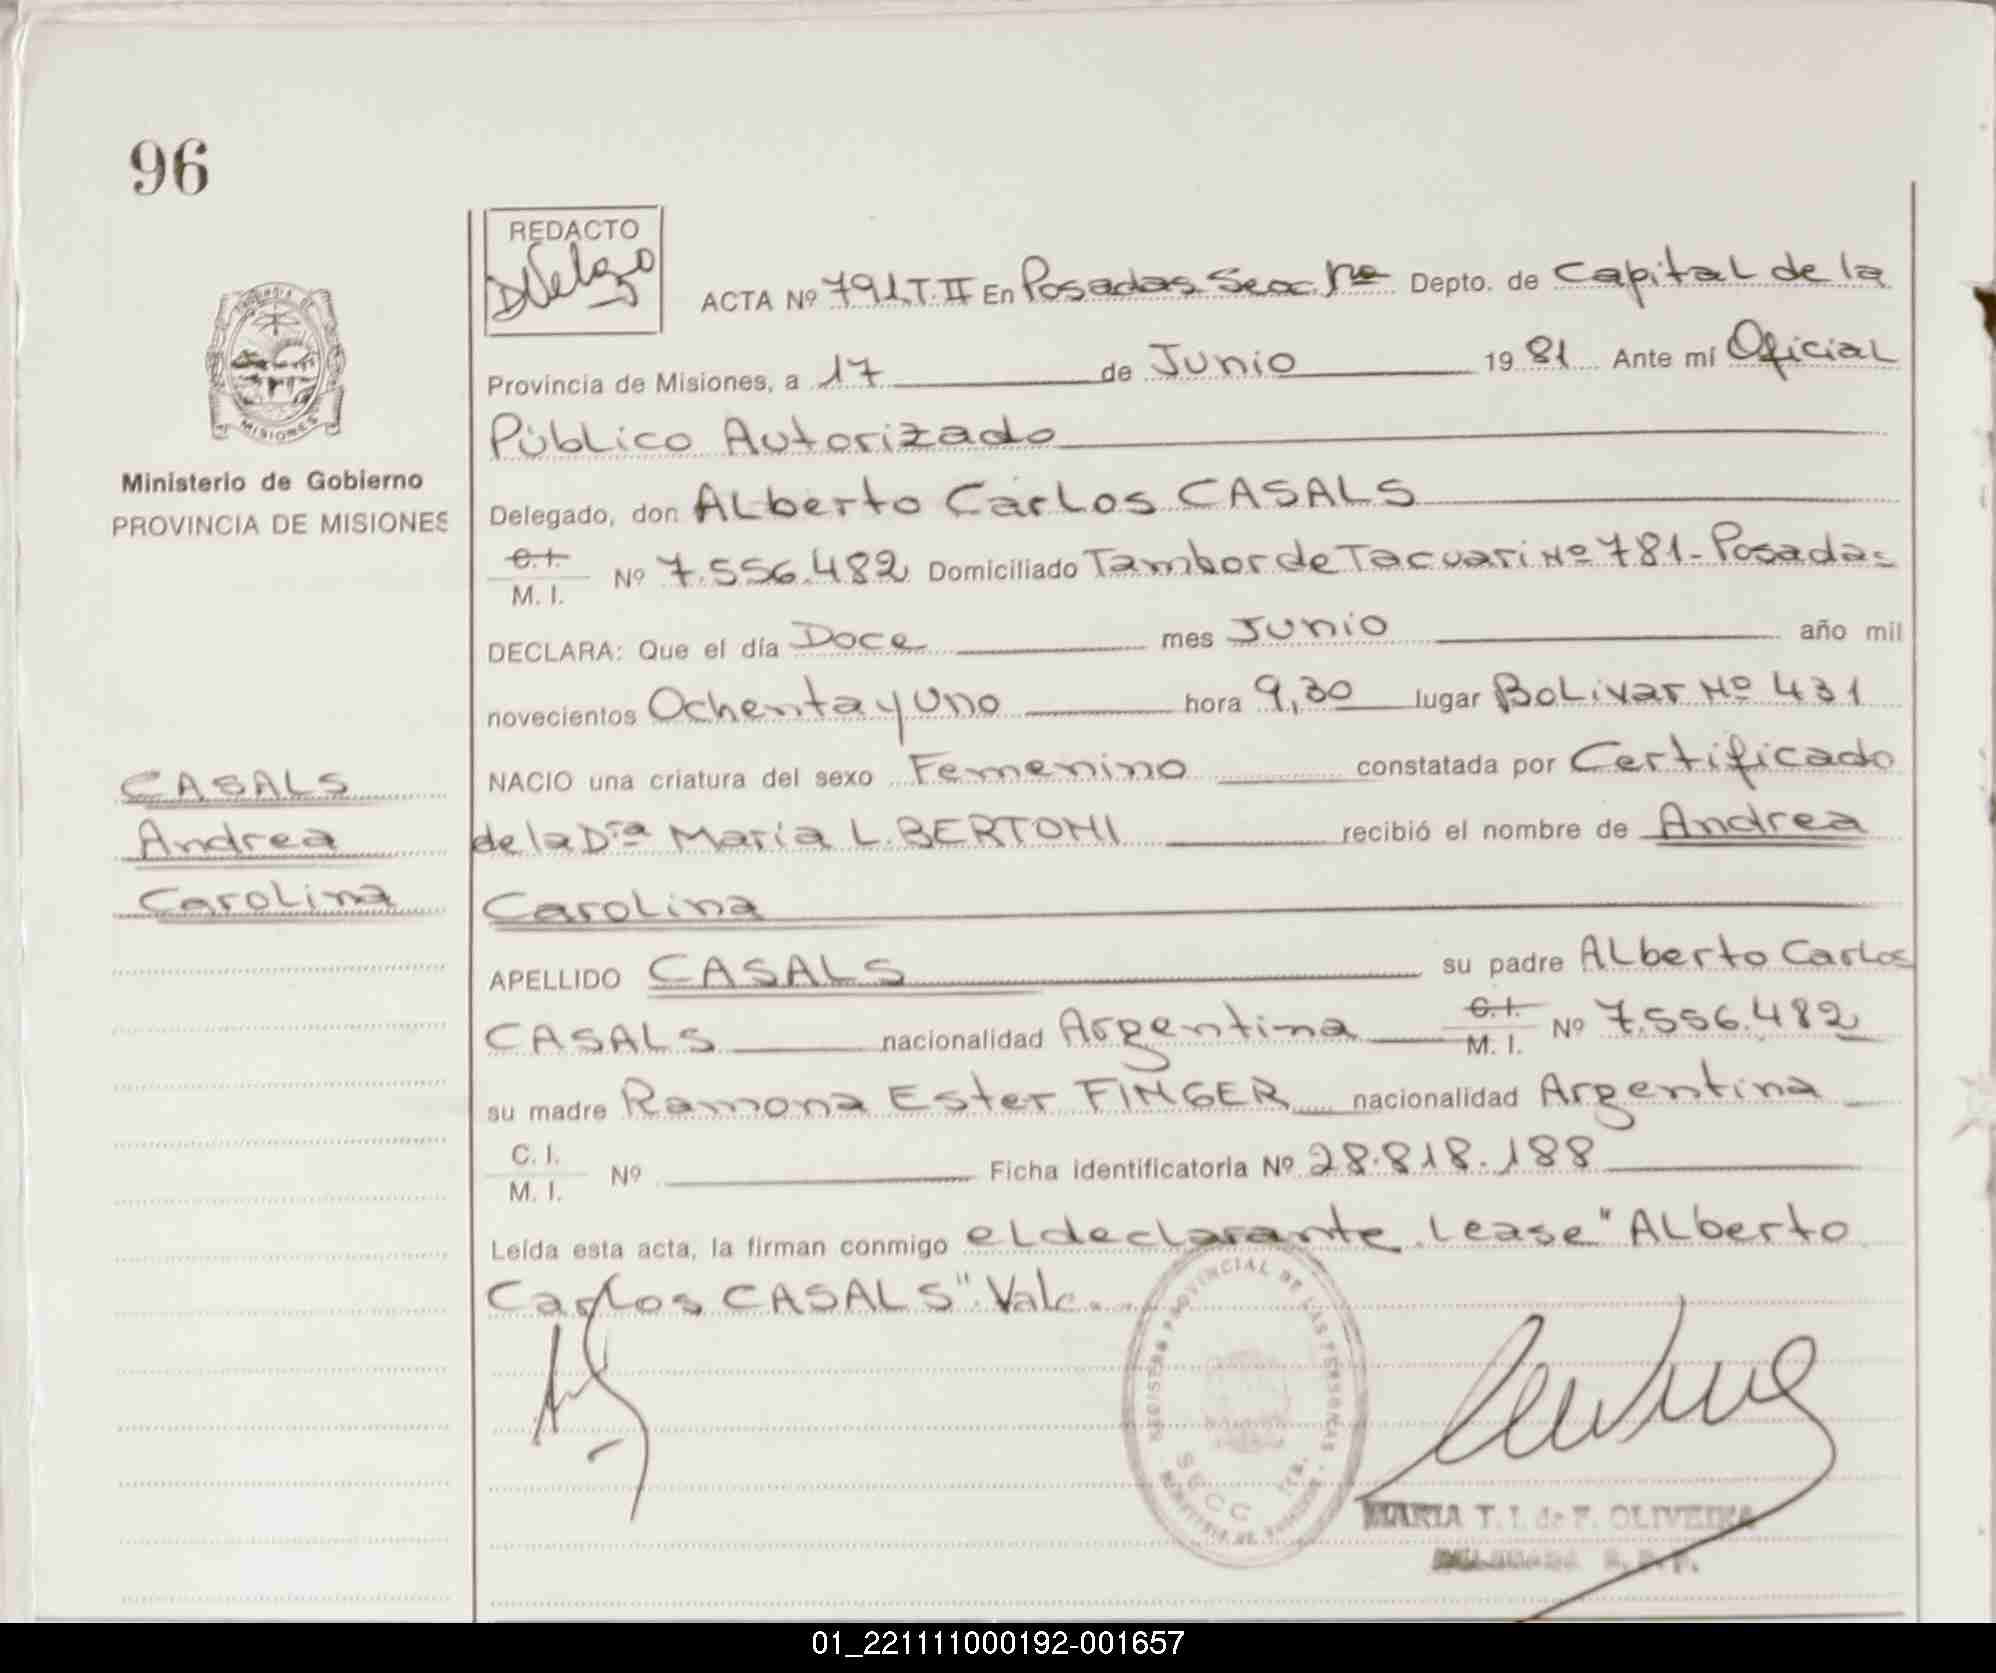 96
REDACTO
ACTA Nº 791.T.II En Posadas Secc. 1ra Depto. de Capital de la
Provincia de Misiones, a 17 de Junio 1981 Ante mí Oficial
Público Autorizado
Ministerio de Gobierno
PROVINCIA DE MISIONES
Delegado, don Alberto Carlos CASALS
C.I.
M. I. Nº 7.556.482 Domiciliado Tambor de Tacuari Nº 781-Posadas
DECLARA: Que el día Doce mes Junio año mil
novecientos Ochenta y Uno hora 9,30 lugar Bolivar Nº 431
NACIO una criatura del sexo Femenino constatada por Certificado
de la Dra María L. BERTONI recibió el nombre de Andrea
Carolina
CASALS
Andrea
Carolina
APELLIDO CASALS su padre Alberto Carlos
CASALS nacionalidad Argentina C.I.
M. I. Nº 7.556.482
su madre Ramona Ester FINGER nacionalidad Argentina
C. I.
M. I. Nº Ficha identificatoria Nº 28.818.188
Leída esta acta, la firman conmigo el declarante. Lease "Alberto
Carlos CASALS". Vale.
REGISTRO PROVINCIAL DE LAS PERSONAS
SECC. 1ra.
MISIONES
MARIA T. I. de F. OLIVEIRA
DELEGADA R. P. P.
01_221111000192-001657